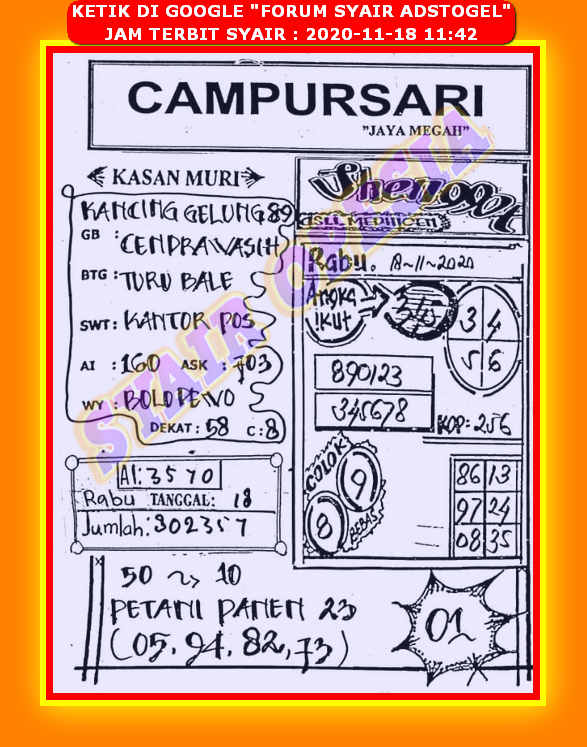 KETIK DI GOOGLE "FORUM SYAIR ADSTOGEL"
JAM TERBIT SYAIR : 2020-11-18 11:42
CAMPURSARI
"JAYA MEGAH"
KASAN MURI
KANCING GELUNG 89
GB : CENDRAWASIH
BTG : TURU BALE
SWT : KANTOR POS
AI : 160 ASK : 703
WY : BOLO DEWO
DEKAT : 58 C : 8
AI : 3570
Rabu TANGGAL : 18
Jumlah : 302357
Rabu. 18-11-2020
Angka
ikut
345
3 4
5 6
890123
345678
KOP : 256
COLOK
9
8
BEBAS
86 13
97 24
08 35
50 10
PETANI PANEN 23
(05, 94, 82, 73)
01
SYAIR OPESIA